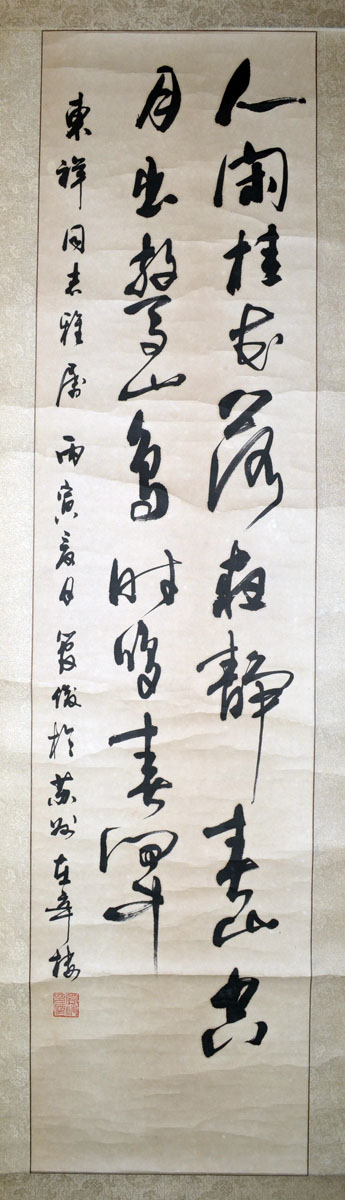 人闲桂花落夜静春山空
月出驚山鳥時鳴春澗中
東祥同志雅屬 丙寅夏月 於蘇州